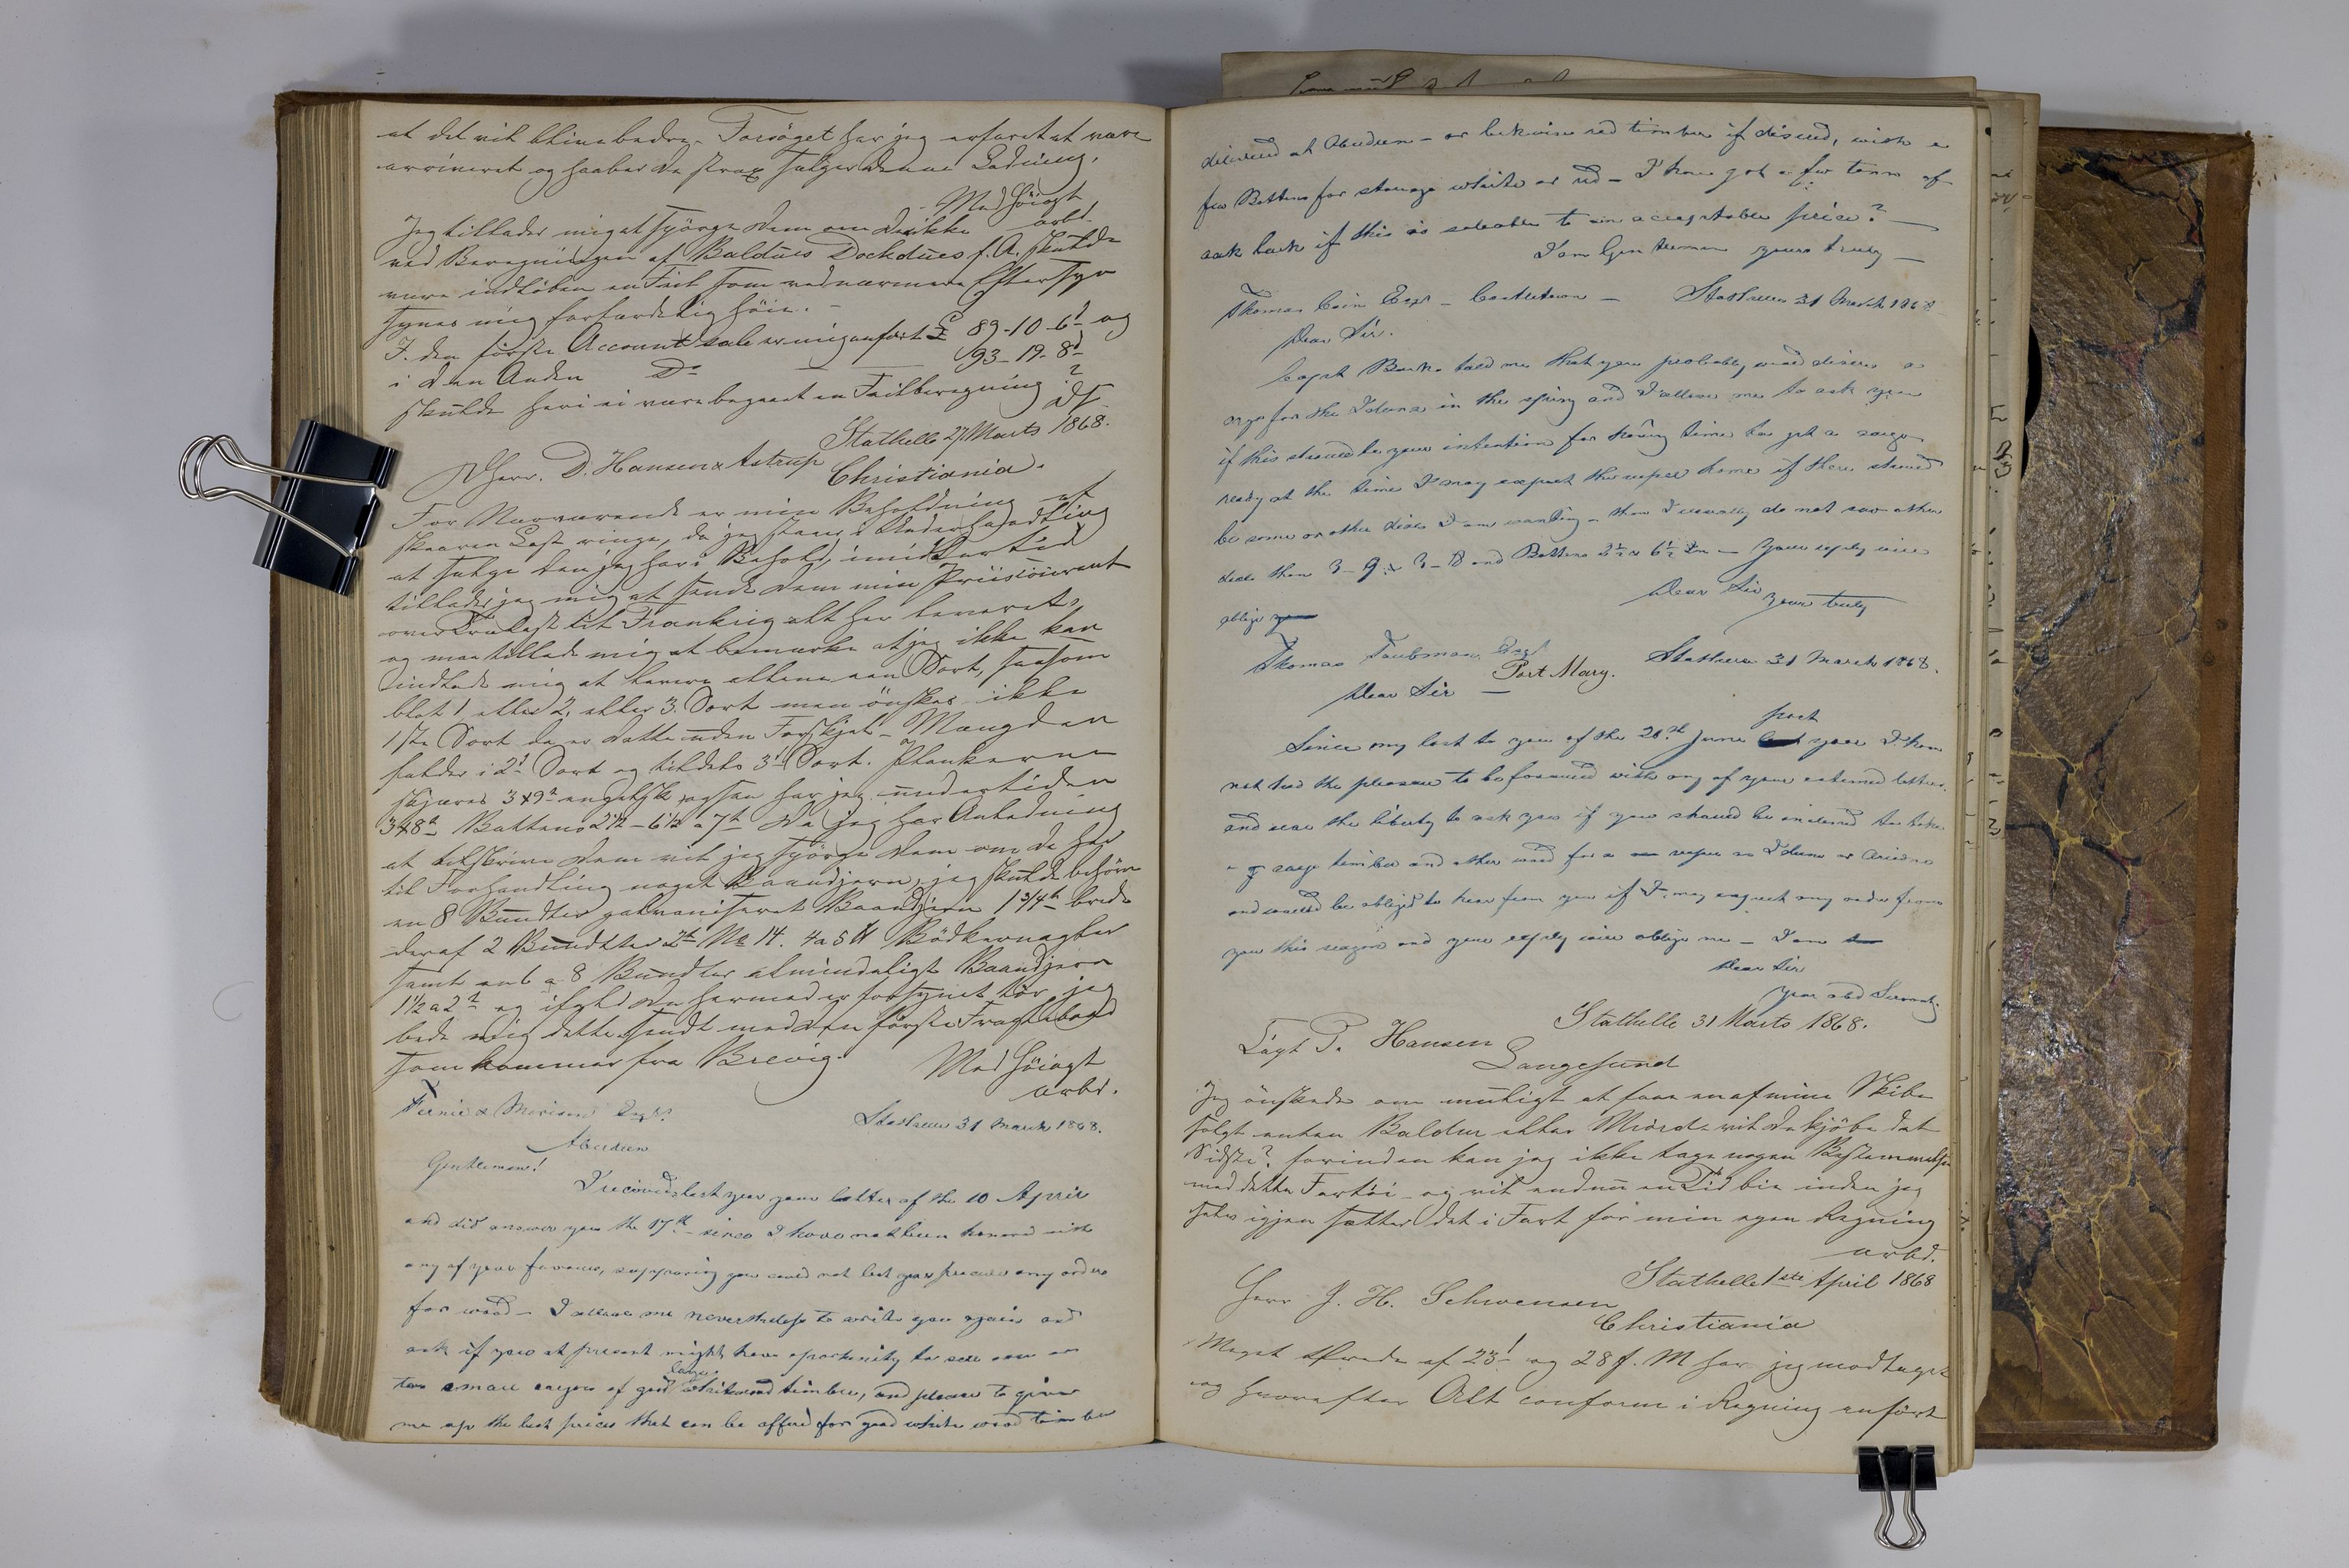 at det vil blive bedre. Forsöget har jeg erfaret at være
arriveret og haaber De strax sælger denne Ladning,
Med Höiagt
arbd.
Jeg tillader mig at spörge Dem om der ikke
ved Beregningen af Baldurs Dockdues f. A. skulde
være indlöben en Feil som ved nærmere Eftersyn
synes mig forfærdelig höie. -
I den förste Account sale er mig anfört £ 89-10-6d og
i den Anden Do - 93-19-8d
skulde heri ei være begaaet en Feilberegning?
DS
Stathelle 27 Marts 1868.
Herr. D. Hansen & Astrup
Christiania.
For Nærværende er min Beholdning af
skaaren Last ringe, da jeg staar i Underhandling
at sælge den jeg har i Behold, imidlertid
tillader jeg mig at sende Dem min Priiscourant
over Trælast til Frankrig alt her leveret,
og maa tillade mig at bemærke at jeg ikke kan
indlade mig at levere allene een Sort, saasom
blot 1, eller 2, eller 3. Sort men önskes ikke
1ste Sort da er dette uden Forskjel - Mængden
falder i 2d Sort og tildels 3d Sort. Plankerne
skjæres 3x9" engelsk, ogsaa har jeg undertiden
3x8" Battens 2½ - 6½ a 7" Da jeg har Anledning
at tilskrive Dem vil jeg spörge Dem om De har
til Forhandling noget Baandjern, jeg skulde behöve
en 8 Bundter galvaniseret Baandjern 1¾" brede
deraf 2 Bundter 2" No 14. 4 a 5 ℔ Bödkernagler
samt en 6 a 8 Bundter almindeligt Baandjern
1½ a 2" og ifald De hermed er forsynet tör jeg
bede mig dette sendt med den förste Fragtebaad
som kommer fra Brevig.
Med Höiagt
arbd.
Fernie & Morison Esqrs
Stathelle 31 March 1868.
Aberdeen
Gentlemen!
I recived last year your letter of the 10 April
and did answer you the 17th - since I have not been honored with
any of your favours, supposing you could not last year procure any orders
for wood - I allow me nevertheless to write you again and
ask if you at present might have oportunity to sell one or
large
two small cargoes of good whitewood timber, and please to give
me up the best prices that can be offered for good white wood timber
delivered at Aberdeen - or likewise red timber if disired, with a
few Battens for stowage white or red - I have got a few tonns of
oak bark if this is saleable to an acceptable price? -
I am Gentlemen yours truly -
Thomas Cain Esqr - Castletown - Stathelle 31 March 1868
Dear Sir.
Capt Barke told me that you probably would disire a
cargo for the Iduna in the spring and I allow me to ask you
if this should be your intention for having time to get a cargo
ready at the time I may expect the vessel home if there should
be some or other deals I am wanting - then I usually do not saw other
deals than 3-9 & 3-8 and Battens 2½ x 6½ In - Your reply will
oblige
Dear Sir
your truly
Thomas Taubman Esqr
Port Mary. Stathelle 31 March 1868.
Dear Sir -
past
Since my last to you of the 26th June year I have
not had the pleasure to be favoured with any of your esteemed letters,
and use the liberty to ask you if you should be inclined to take
a cargo timber and other wood for a vessel as Iduna or Ariadne
and would be obliged to hear from you if I may expect any order from
you this season and your reply will oblige me - I am
Dear Sir
your obd Servant.
Stathelle 31 Marts 1868.
Capt P. Hansen
Langesund
Jeg önskede om muligt at faae en af mine Skibe
solgt enten Baldur eller Njord - vil De kjöbe det
Sidste? forinden kan jeg ikke tage nogen Bestemmelse
med dette Fartöi - og vil endnu en Tid bie inden jeg
selv igjen sætter det i Fart for min egen Regning
arbd.
Stathelle 1ste April 1868
Herr J. H. Schwensen
Christiania
Meget Ærede af 23d og 28 f. M har jeg modtaget
og hvorefter Alt conform i Regning anfört